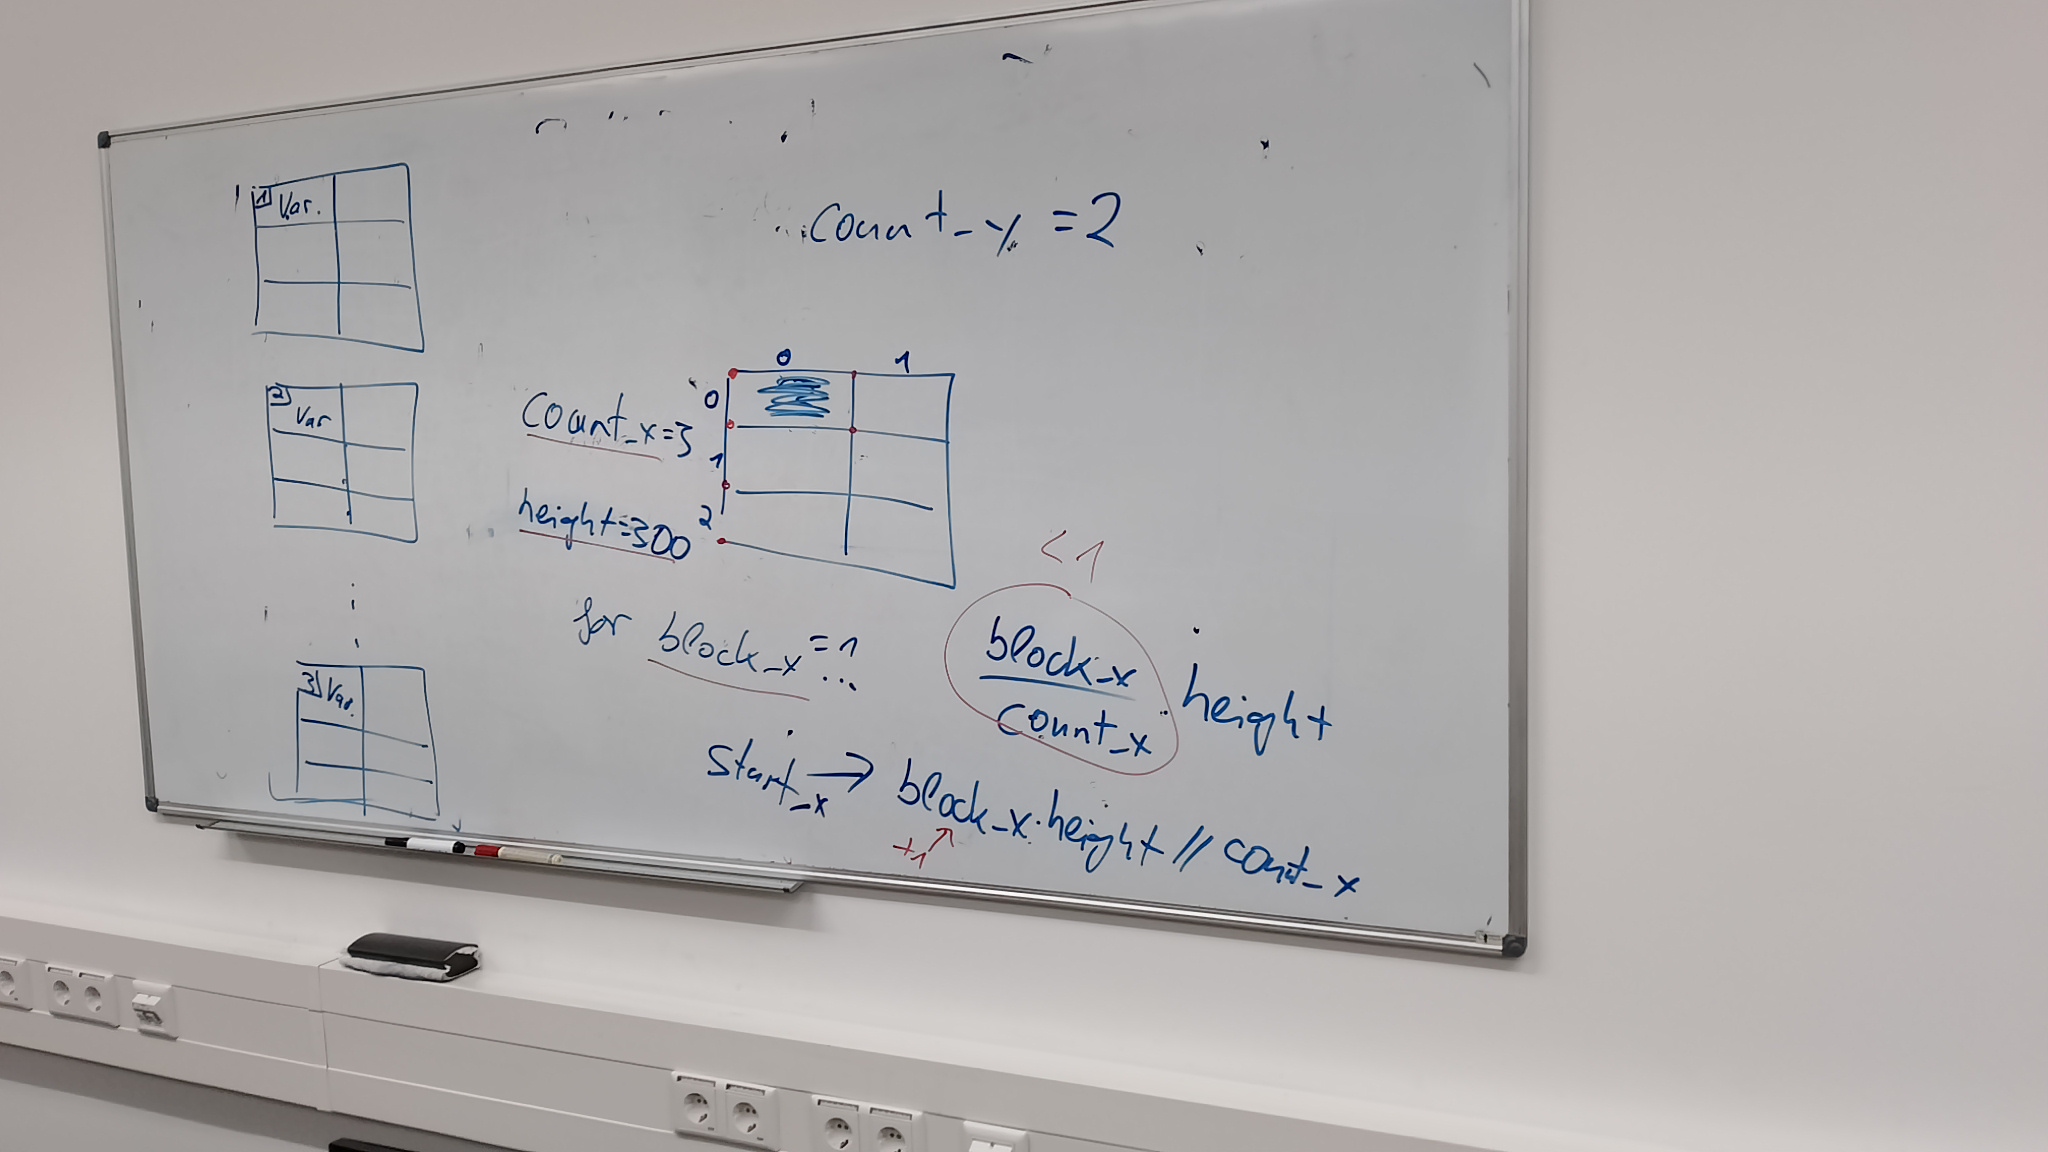 count_y = 2
1 Var.
2 Var
3) Var.
0 1
0
1
2
count_x = 3
height = 300
for block_x = 1 ...
< 1
block_x
count_x
· height
start_x → block_x · height // count_x
+1